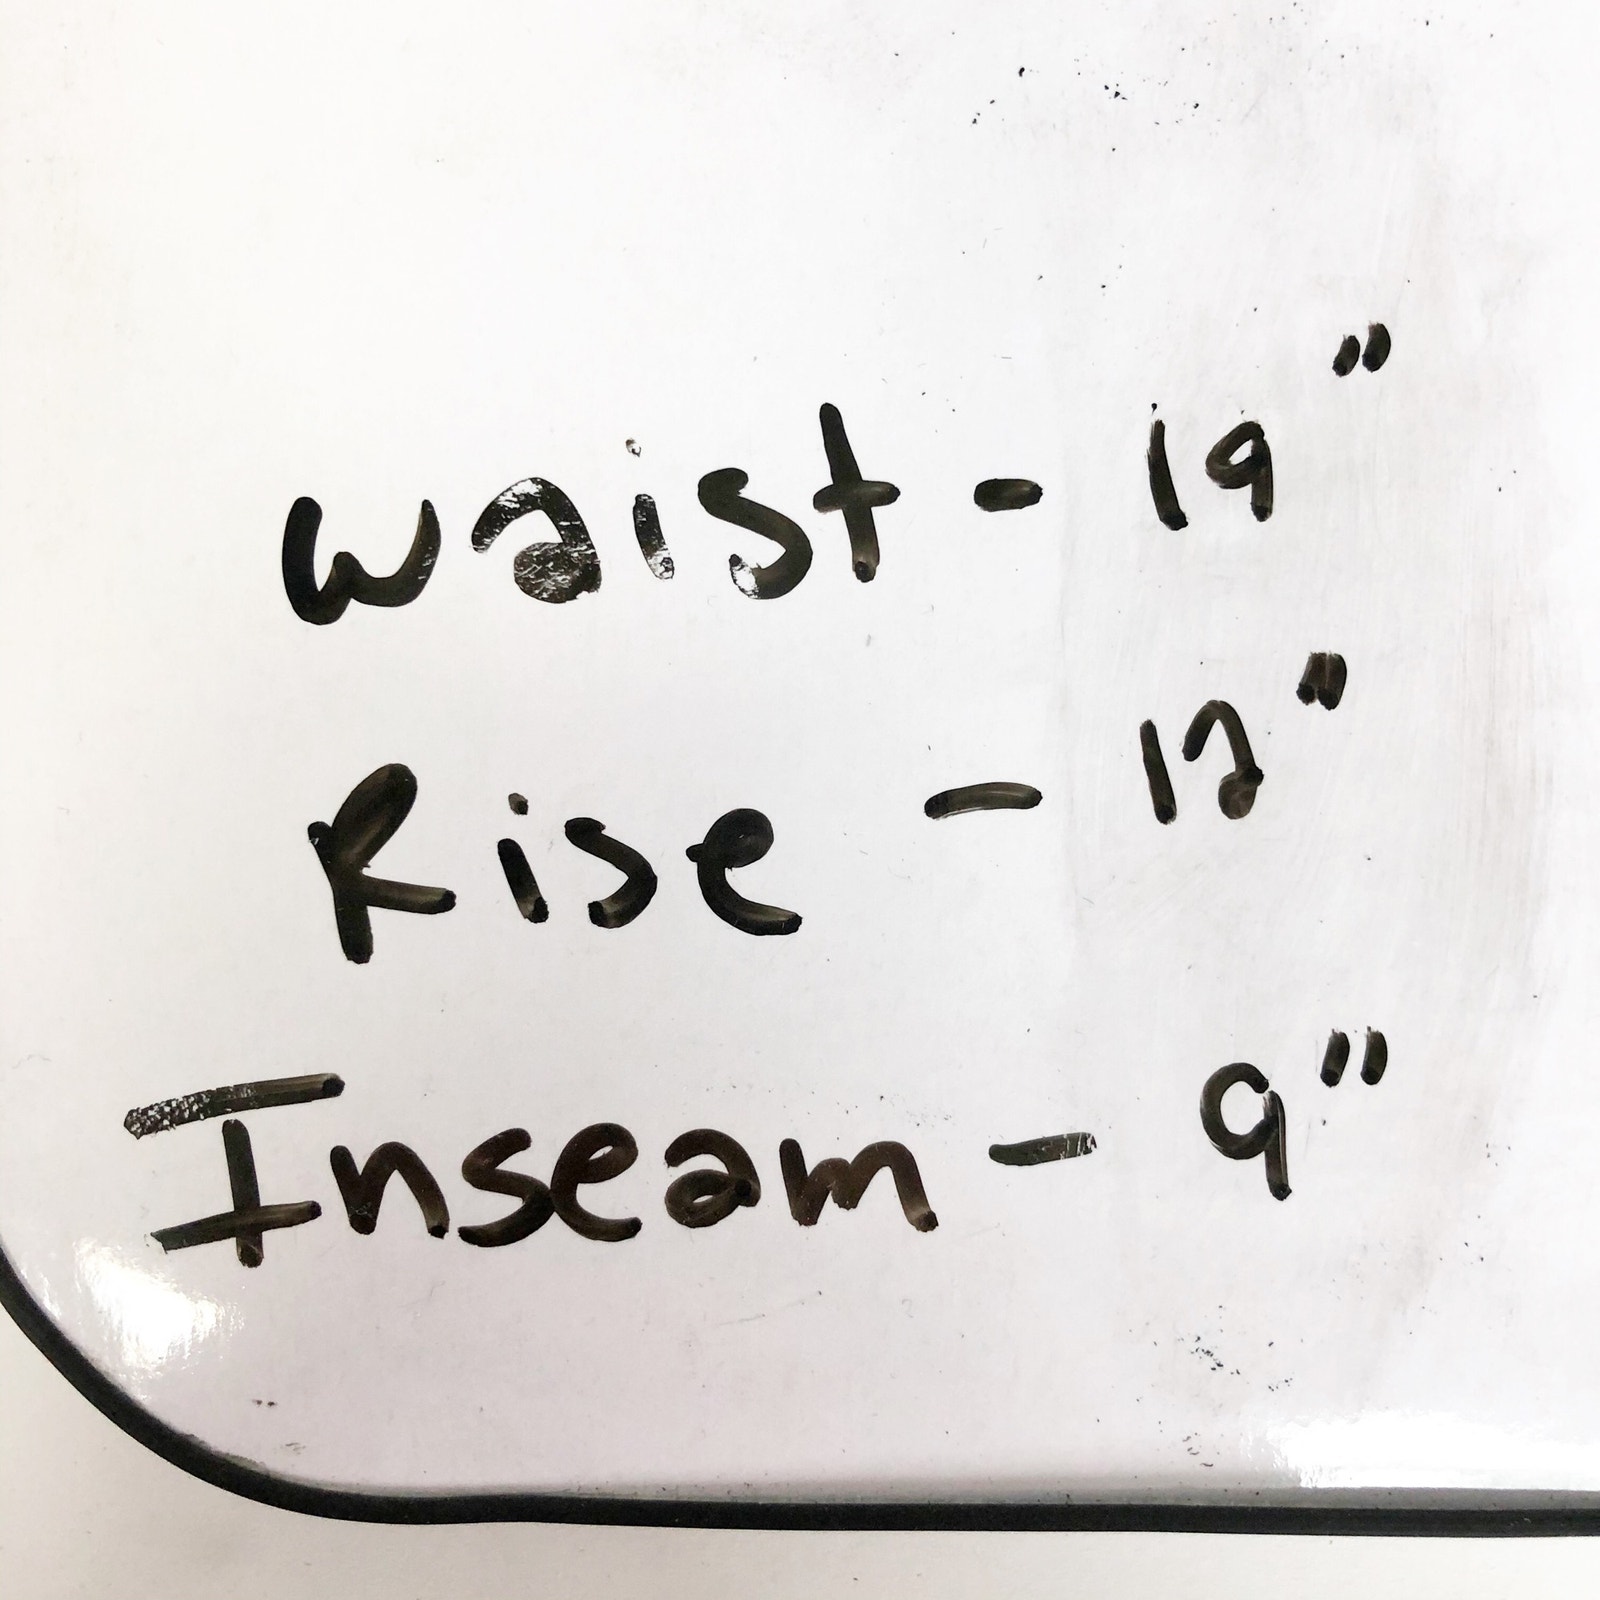 Waist - 19"
Rise - 12"
Inseam - 9"